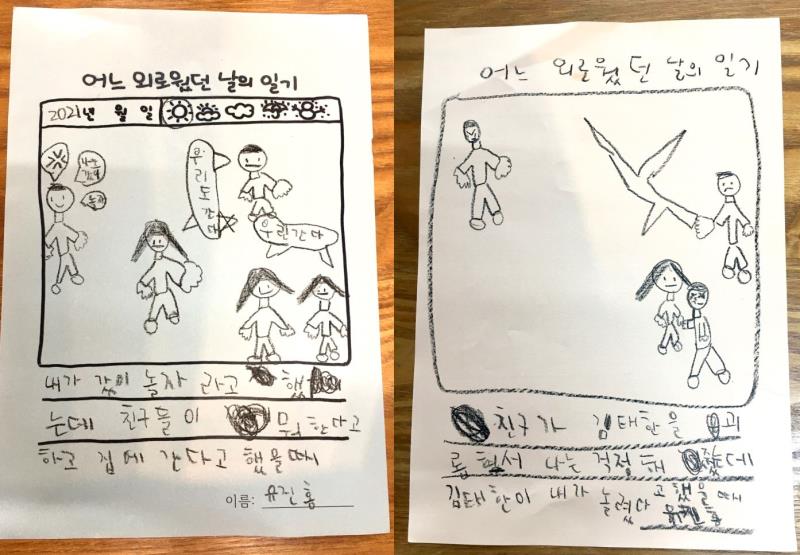 어느 외로웠던 날의 일기
2021년 월 일
우리도 간다
우린 간다
놀자
내가 같이 놀자 라고 했
는데 친구들이 뭐 한다고
하고 집에 간다고 했을 때
이름: 유진홍
어느 외로웠던 날의 일기
친구가 김태한을 괴
롭혀서 나는 걱정해 줬는데
김태한이 내가 놀렸다고 했을 때
유진홍